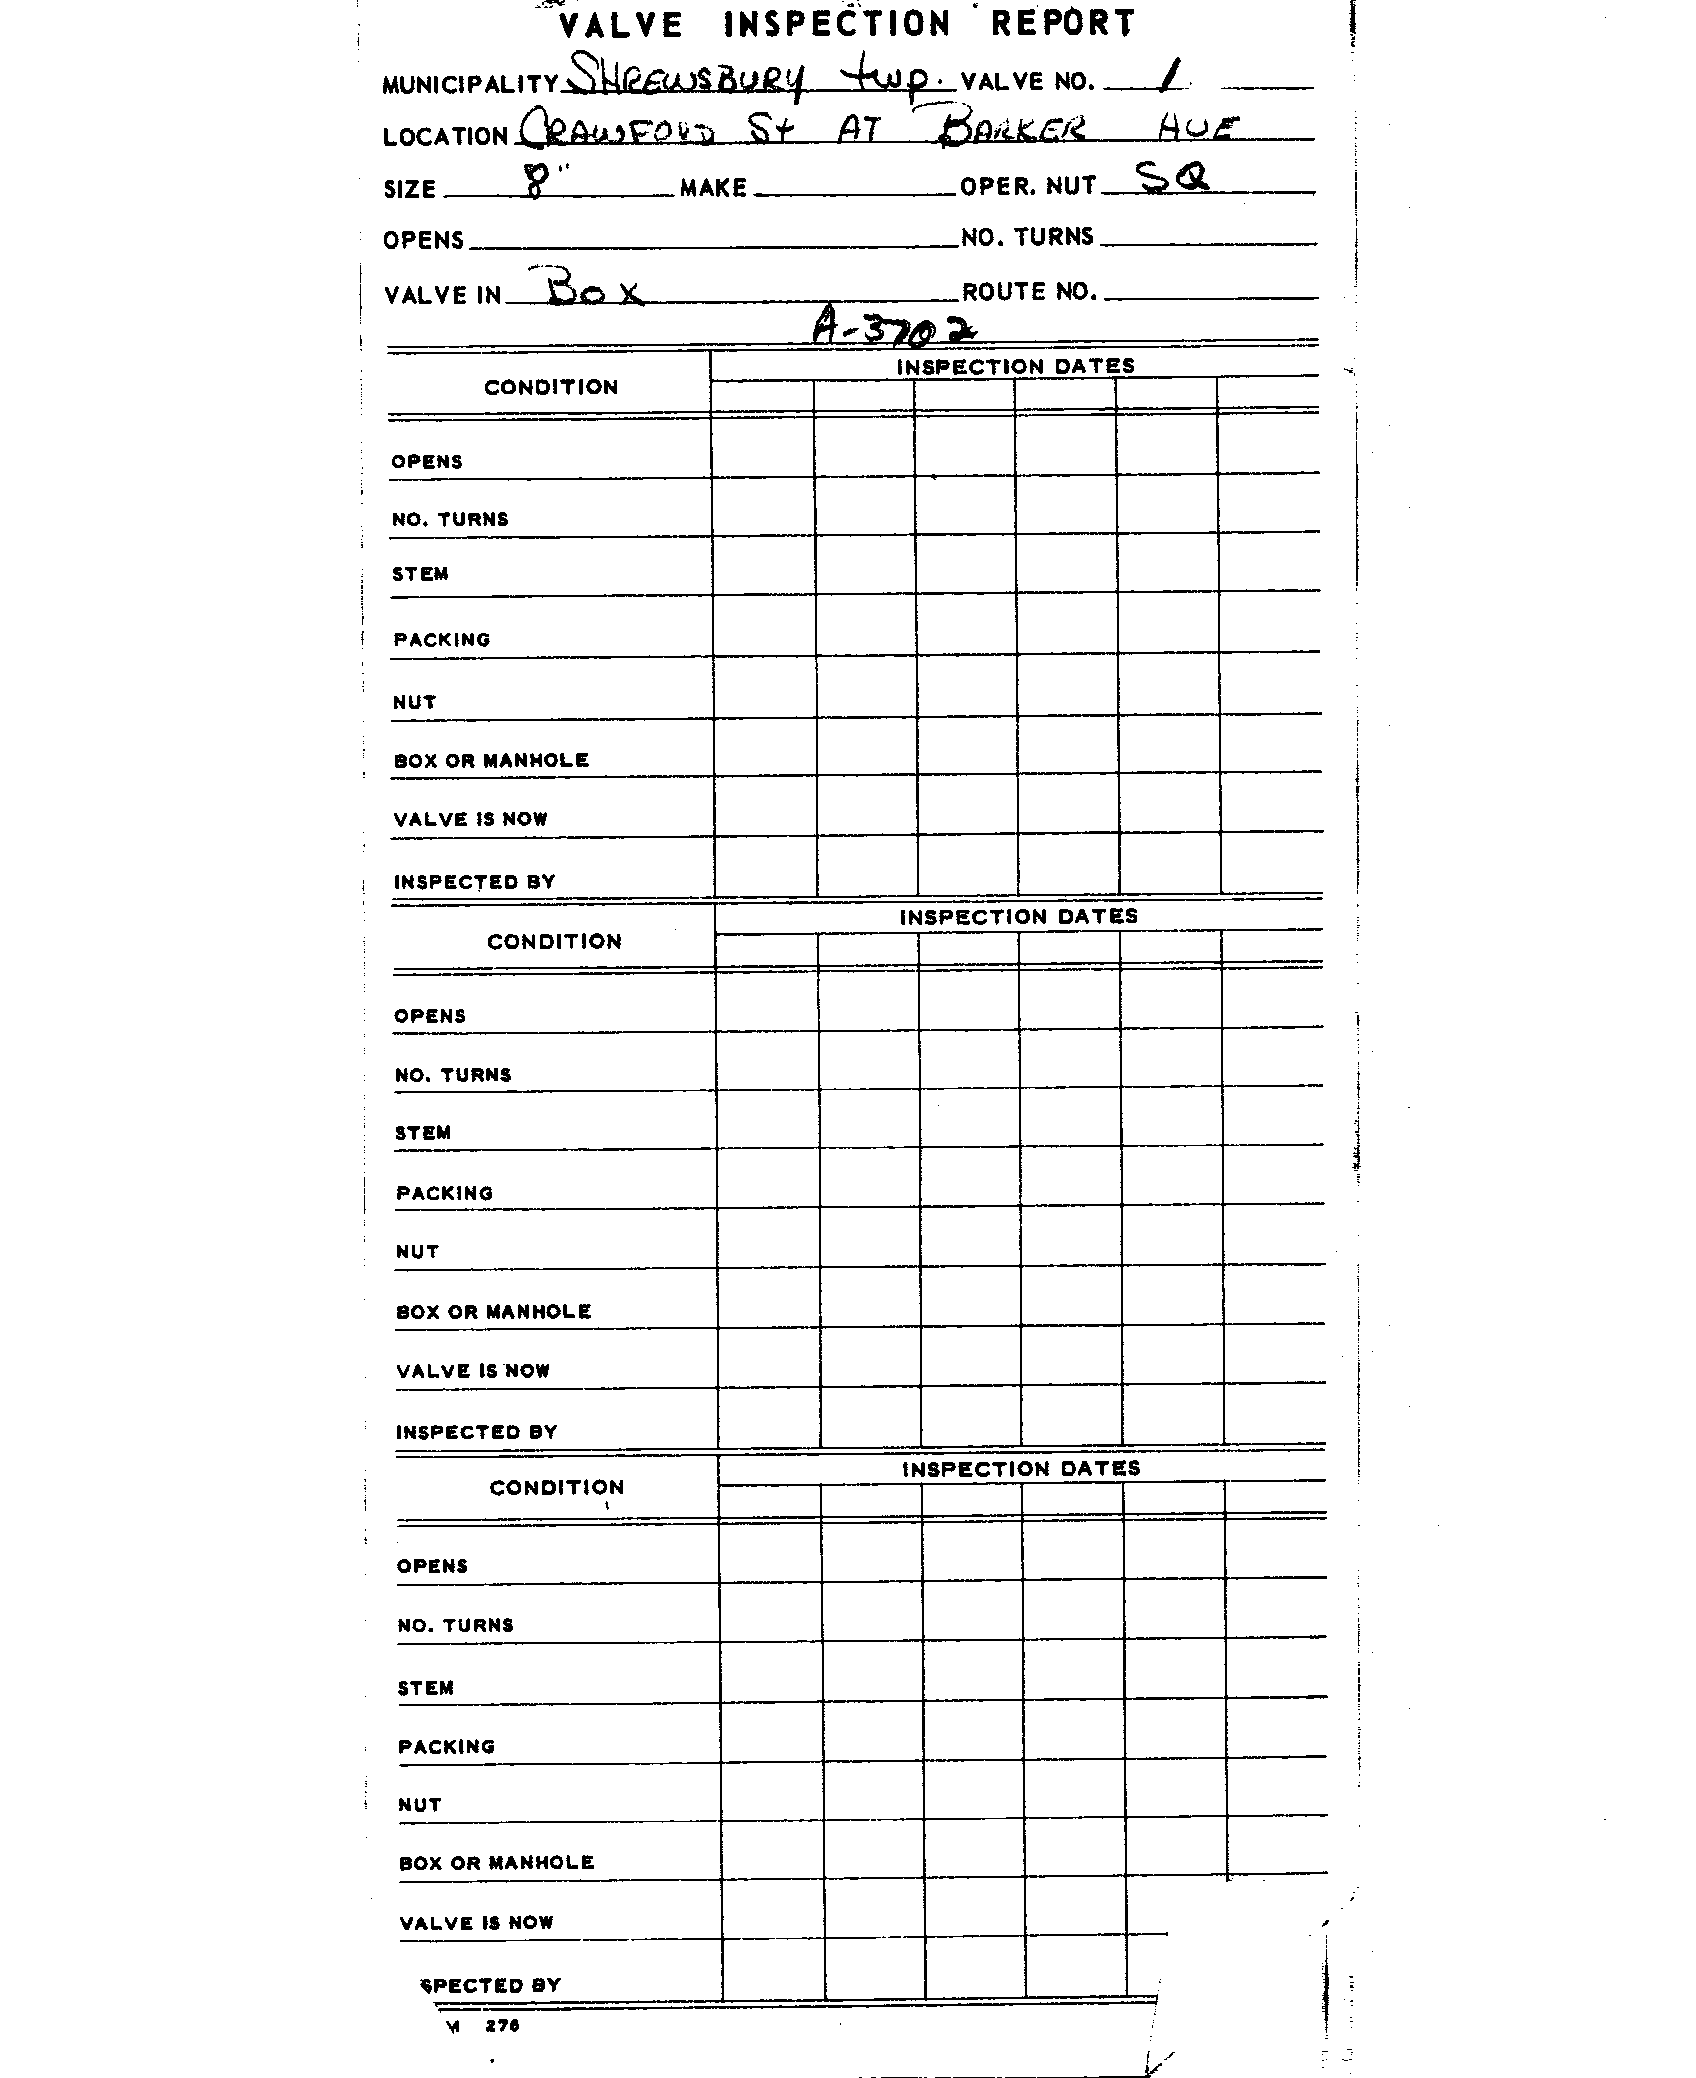 VALVE INSPECTION REPORT
MUNICIPALITY SHREWSBURY twp. VALVE NO. 1
LOCATION CRAWFORD St AT BARKER AUE
SIZE 8" MAKE OPER. NUT SQ
OPENS NO. TURNS
VALVE IN BOX ROUTE NO.
A-3702
INSPECTION DATES
CONDITION
OPENS
NO. TURNS
STEM
PACKING
NUT
BOX OR MANHOLE
VALVE IS NOW
INSPECTED BY
INSPECTION DATES
CONDITION
OPENS
NO. TURNS
STEM
PACKING
NUT
BOX OR MANHOLE
VALVE IS NOW
INSPECTED BY
INSPECTION DATES
CONDITION
OPENS
NO. TURNS
STEM
PACKING
NUT
BOX OR MANHOLE
VALVE IS NOW
SPECTED BY
M 276